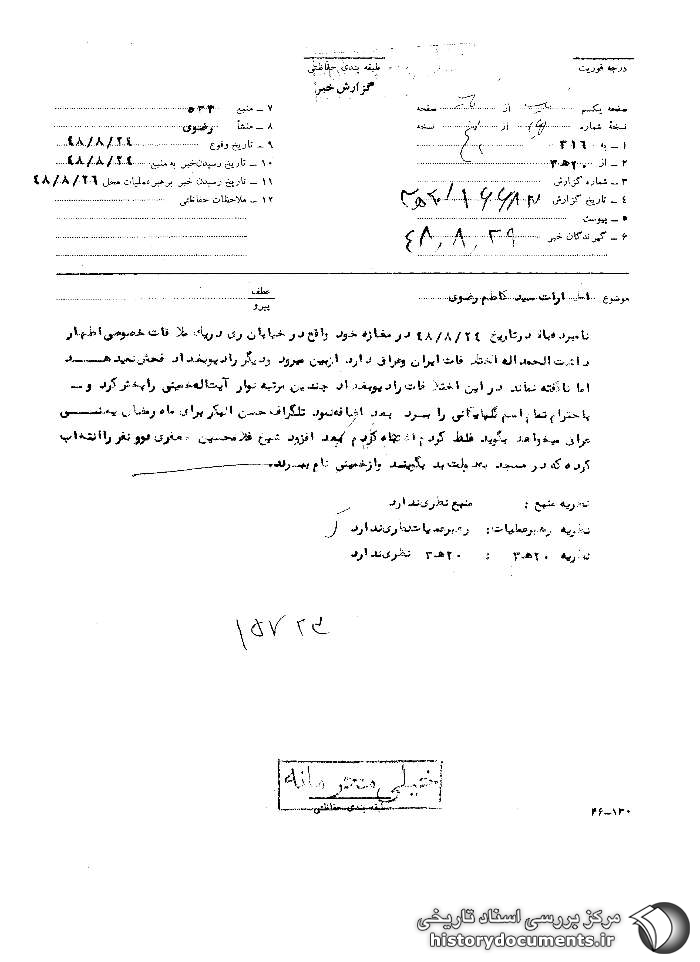 درجه فوریت
طبقه بندی حفاظتی
گزارش خبر
صفحه یکم از صفحه
نسخهٔ شماره از نسخه
۱ ـ به ۳۱۶
۲ ـ از ۲۰ ه ۳
۳ ـ شماره گزارش
۴ ـ تاریخ گزارش
۵ ـ پیوست
۶ ـ گیرندگان خبر ۴۸,۸,۲۹
۷ ـ منبع ۵۳۳
۸ ـ منشأ رضوی
۹ ـ تاریخ وقوع ۴۸/۸/۲۴
۱۰ ـ تاریخ رسیدن خبر به منبع ۴۸/۸/۲۴
۱۱ ـ تاریخ رسیدن خبر برهبر عملیات محل ۴۸/۸/۲۶
۱۲ ـ ملاحظات حفاظتی
موضوع اظهارات سید کاظم رضوی
عطف
پیرو
نامبرده بالا در تاریخ ۴۸/۸/۲۴ در مغازه خود واقع در خیابان ری در یک ملاقات خصوصی اظهار
داشت الحمداله اختلافات ایران وعراق دارد ازبین میرود ودیگر رادیوبغداد فحش نمیدهد
اما ناگفته نماند در این اختلافات رادیوبغداد چندین مرتبه نوار آیت‌اله‌خمینی را پخش کرد و
با احترام تمام اسم گلپایگانی را میبرد بعد اضافه نمود تلگراف حسن البکر برای ماه رمضان یعنی
عراق میخواهد بگوید غلط کردم اشتباه کردم بعد افزود شیخ غلامحسین جعفری دوو نفر را انتخاب
کرده که در مسجد به دولت بد بگویند و از خمینی نام ببرند.
نظریه منبع : منبع نظری ندارد
نظریه رهبر عملیات : رهبر عملیات نظری ندارد
نظریه ۲۰ ه ۳ : ۲۰ ه ۳ نظری ندارد
۱۵۷۲۳
خیلی محرمانه
طبقه بندی حفاظتی
۴۶-۱۳۰
مرکز بررسی اسناد تاریخی
historydocuments.ir